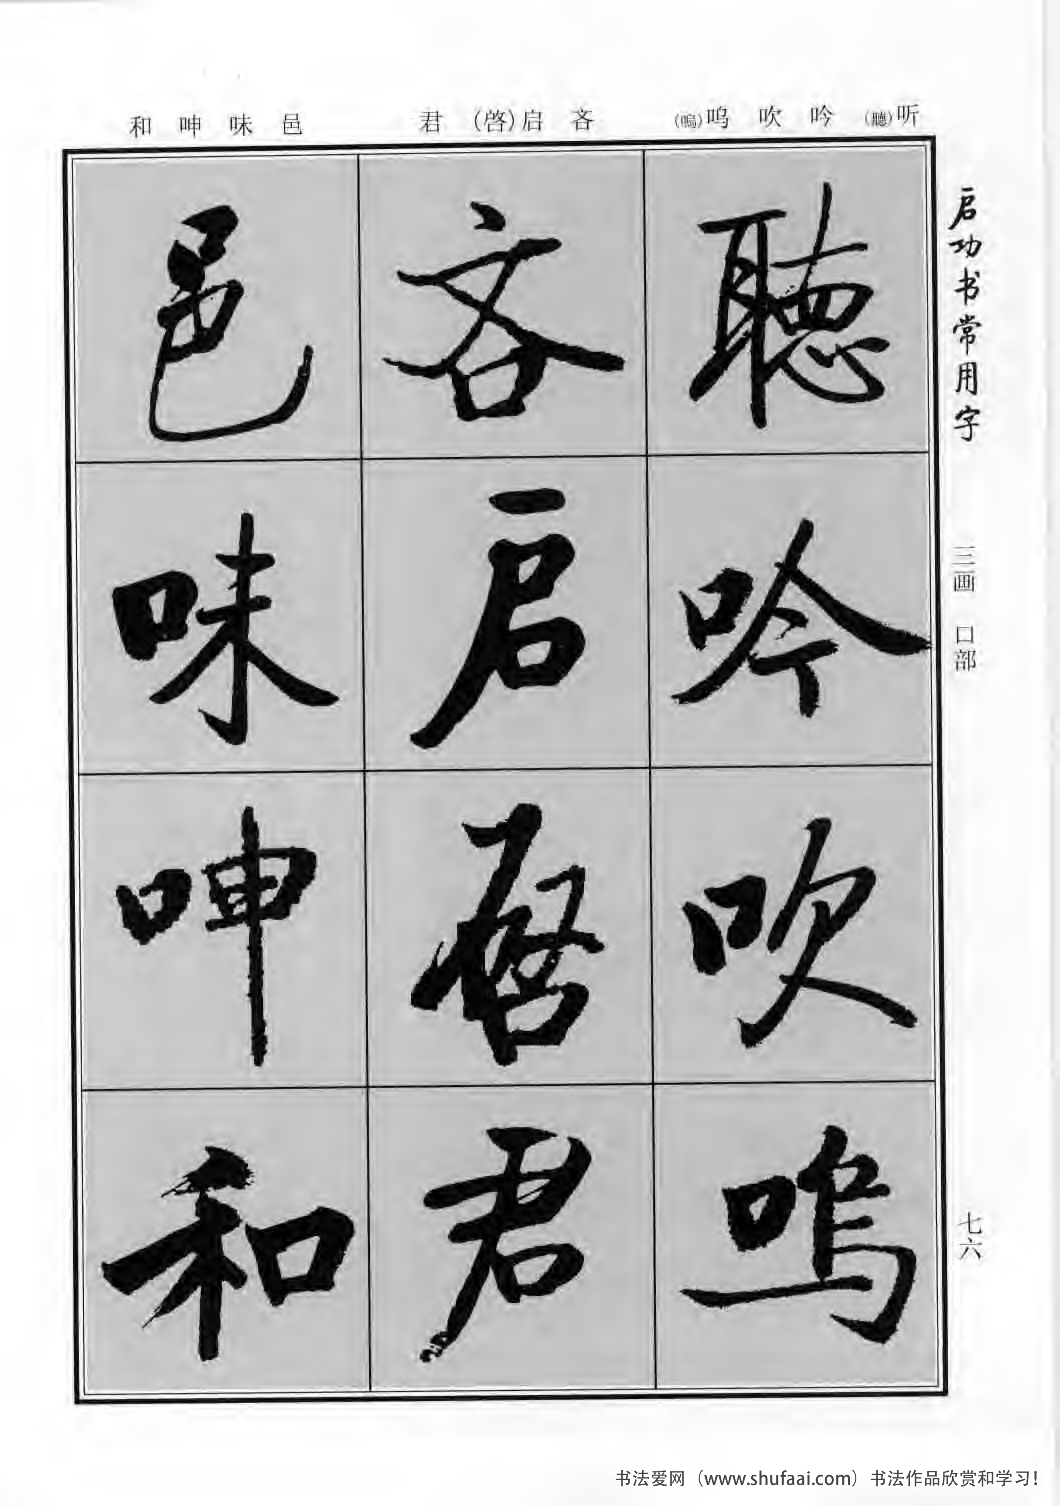 听(聽) 吟 吹 呜(嗚)
吝 启(啓) 君
邑 味 呻 和
聽
吟
吹
嗚
吝
启
啓
君
邑
味
呻
和
启功书常用字
三画 口部
七六
书法爱网（www.shufaai.com）书法作品欣赏和学习!